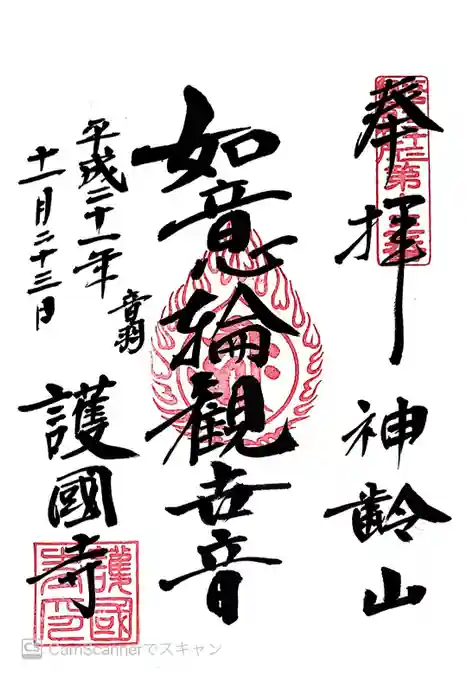 奉拝
神齢山
如意輪観世音
平成二十一年
十一月二十三日
音羽
護國寺
護國
寺印
CamScannerでスキャン